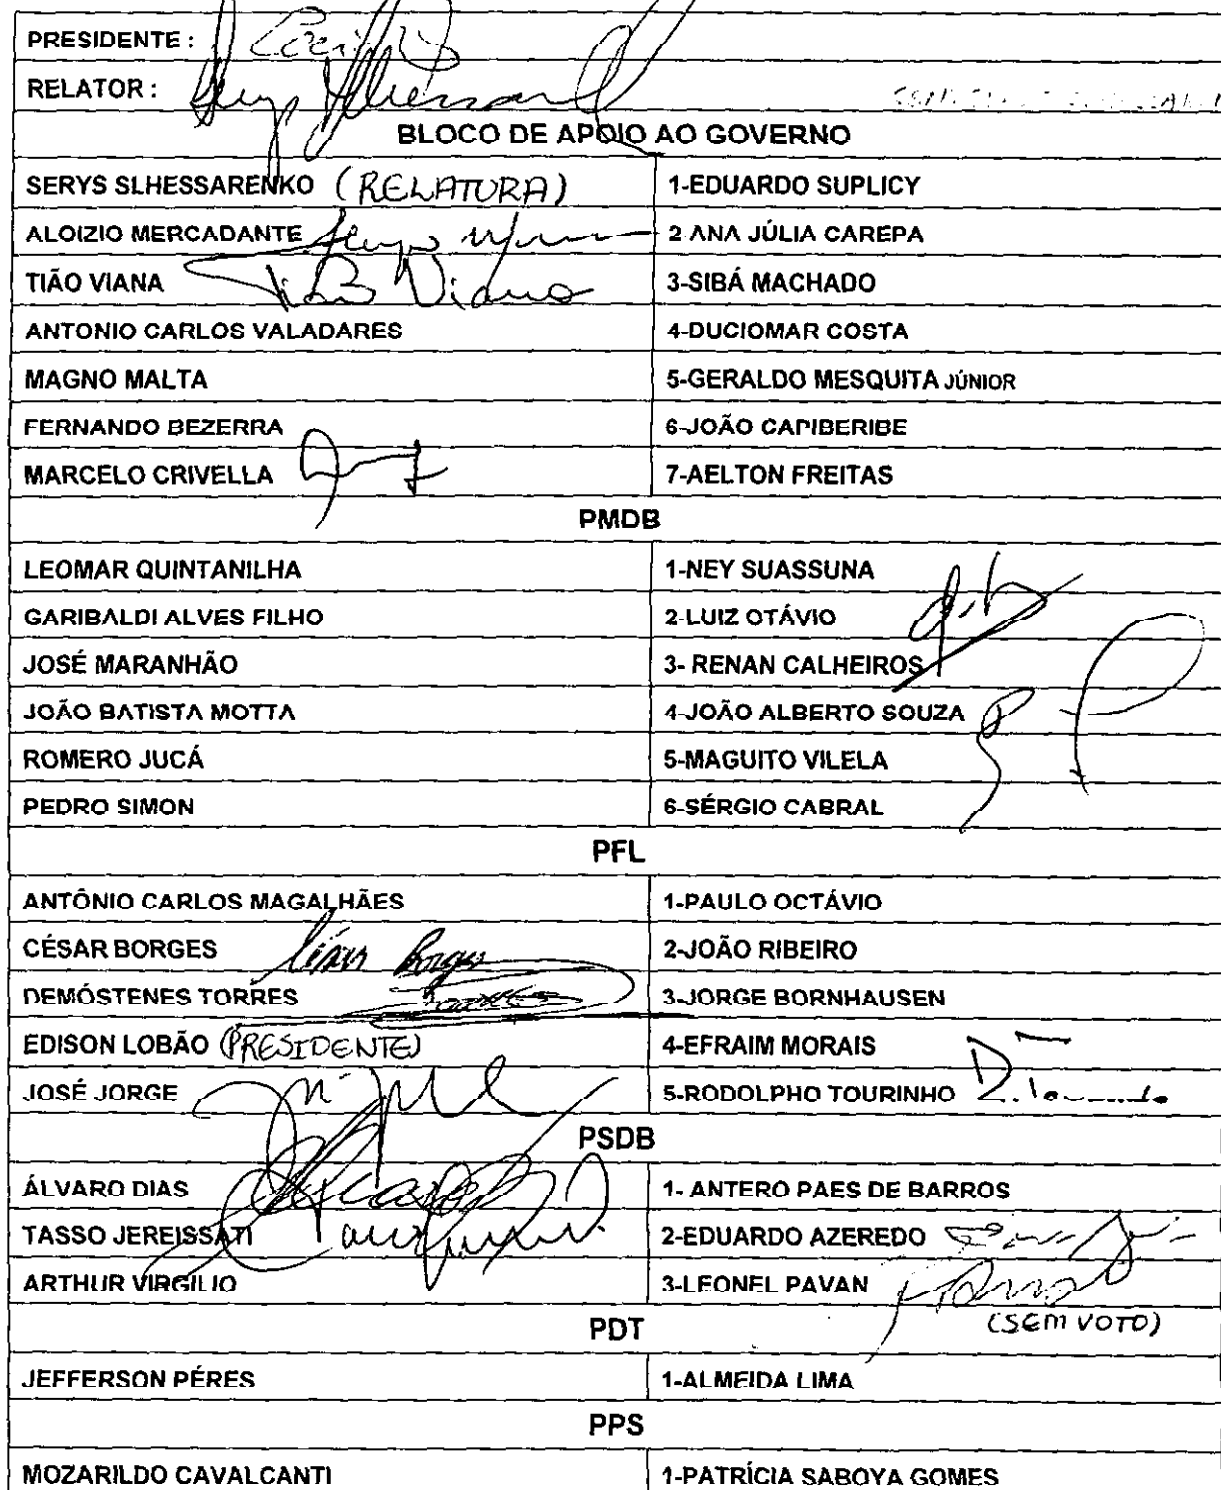 PRESIDENTE :
RELATOR :
BLOCO DE APOIO AO GOVERNO
SERYS SLHESSARENKO (RELATORA) 1-EDUARDO SUPLICY
ALOIZIO MERCADANTE 2 ANA JÚLIA CAREPA
TIÃO VIANA Tião Viana 3-SIBÁ MACHADO
ANTONIO CARLOS VALADARES 4-DUCIOMAR COSTA
MAGNO MALTA 5-GERALDO MESQUITA JÚNIOR
FERNANDO BEZERRA 6-JOÃO CAPIBERIBE
MARCELO CRIVELLA 7-AELTON FREITAS
PMDB
LEOMAR QUINTANILHA 1-NEY SUASSUNA
GARIBALDI ALVES FILHO 2-LUIZ OTÁVIO
JOSÉ MARANHÃO 3- RENAN CALHEIROS
JOÃO BATISTA MOTTA 4-JOÃO ALBERTO SOUZA
ROMERO JUCÁ 5-MAGUITO VILELA
PEDRO SIMON 6-SÉRGIO CABRAL
PFL
ANTÔNIO CARLOS MAGALHÃES 1-PAULO OCTÁVIO
CÉSAR BORGES César Borges 2-JOÃO RIBEIRO
DEMÓSTENES TORRES 3-JORGE BORNHAUSEN
EDISON LOBÃO (PRESIDENTE) 4-EFRAIM MORAIS
JOSÉ JORGE 5-RODOLPHO TOURINHO
PSDB
ÁLVARO DIAS 1- ANTERO PAES DE BARROS
TASSO JEREISSATI 2-EDUARDO AZEREDO
ARTHUR VIRGÍLIO 3-LEONEL PAVAN
(SEM VOTO)
PDT
JEFFERSON PÉRES 1-ALMEIDA LIMA
PPS
MOZARILDO CAVALCANTI 1-PATRÍCIA SABOYA GOMES